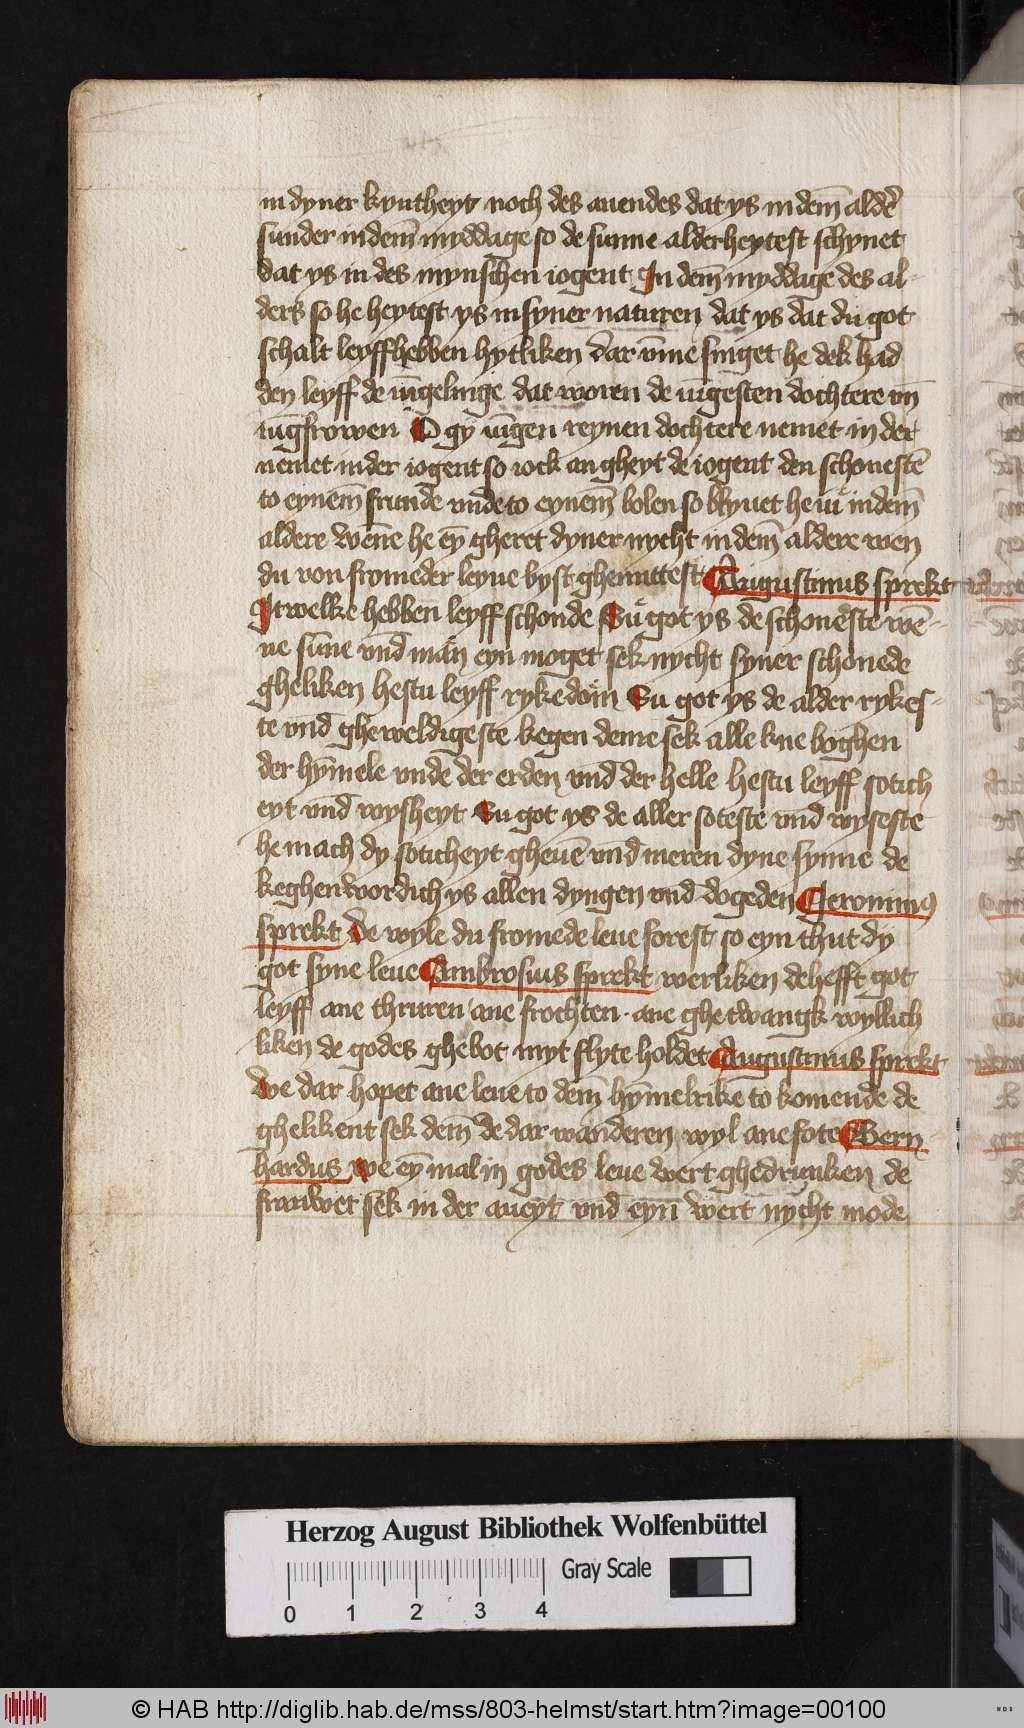 in dyner kyntheyt noch des auendes dat ys in dem̄ alde͛
sunder in dem̄ myddage so de sunne alderheytest schynet
dat ys in des mynschen iogent In dem̄ myddage des al-
ders so he heytest ys in syner naturen dat ys dat du got
schalt leyff hebben hytliken dar vm̄e singet he dek had
den leyff de iūgelinge dat woren de iūgesten dochtere vn̄
iūgfrowen O gy iūgen reynen dochtere nemet in der
nemet in der iogent so iock an gheyt de iogent den schonestē
to eynem̄ frunde vnde to eynem̄ bolen so blyuet he iu in dem̄
aldere wēne he ey̅ gheret dyner nycht in dem̄ aldere wen
du von fromeder leyue byst ghenuttest Augustinus sprekt
Itwelke hebben leyff schonde Su got ys de schoneste wē-
ne sūne vnd mān eyn moget sek nycht syner schonede
gheliken hestu leyff rykedom Su got ys de alder rykes-
te vnd gheweldigeste kegen deme sek alle kne boghen
der hȳmele vnde der erden vnd der helle hestu leyff soticheyt
eyt vnd wysheyt Su got ys de aller soteste vnd wyseste
he mach dy soticheyt gheuē vnd meren dyne synne de
keghenwordich ys allen dyngen vnd dogeden Jeronimus
sprekt De wyle du fromede leue forest so eyn thut dy
got syne leue Ambrosius sprekt werliken de hefft got
leyff ane thruren ane frochten · ane ghetwangk wyllich
liken de godes ghebot myt flyte holdet Augustinus sprekt
We dar hopet ane leue to dem̄ hȳmelrike to komende de
ghelikent sek dem̄ de dar wanderen wyl ane fote Bern
hardus we ey̅ mal in godes leue wert ghedrunken de
frauwet sek in der aueyt vnd eyn wert nycht mode
Herzog August Bibliothek Wolfenbüttel
Gray Scale
0 1 2 3 4
© HAB http://diglib.hab.de/mss/803-helmst/start.htm?image=00100